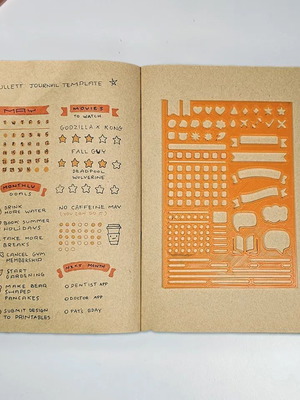 ULLETT JOURNAL TEMPLATE
MAY
MONTHLY
GOALS
DRINK
MORE WATER
BOOK SUMMER
HOLIDAYS
TAKE MORE
BREAKS
CANCEL GYM
MEMBERSHIP
START
GARDENING
MAKE BEAR
SHAPED
PANCAKES
SUBMIT DESIGN
TO PRINTABLES
MOVIES
TO WATCH
GODZILLA X KONG
FALL GUY
DEADPOOL
WOLVERINE
NO CAFFEINE MAY
NEXT MONTH
DENTIST APP
DOCTOR APP